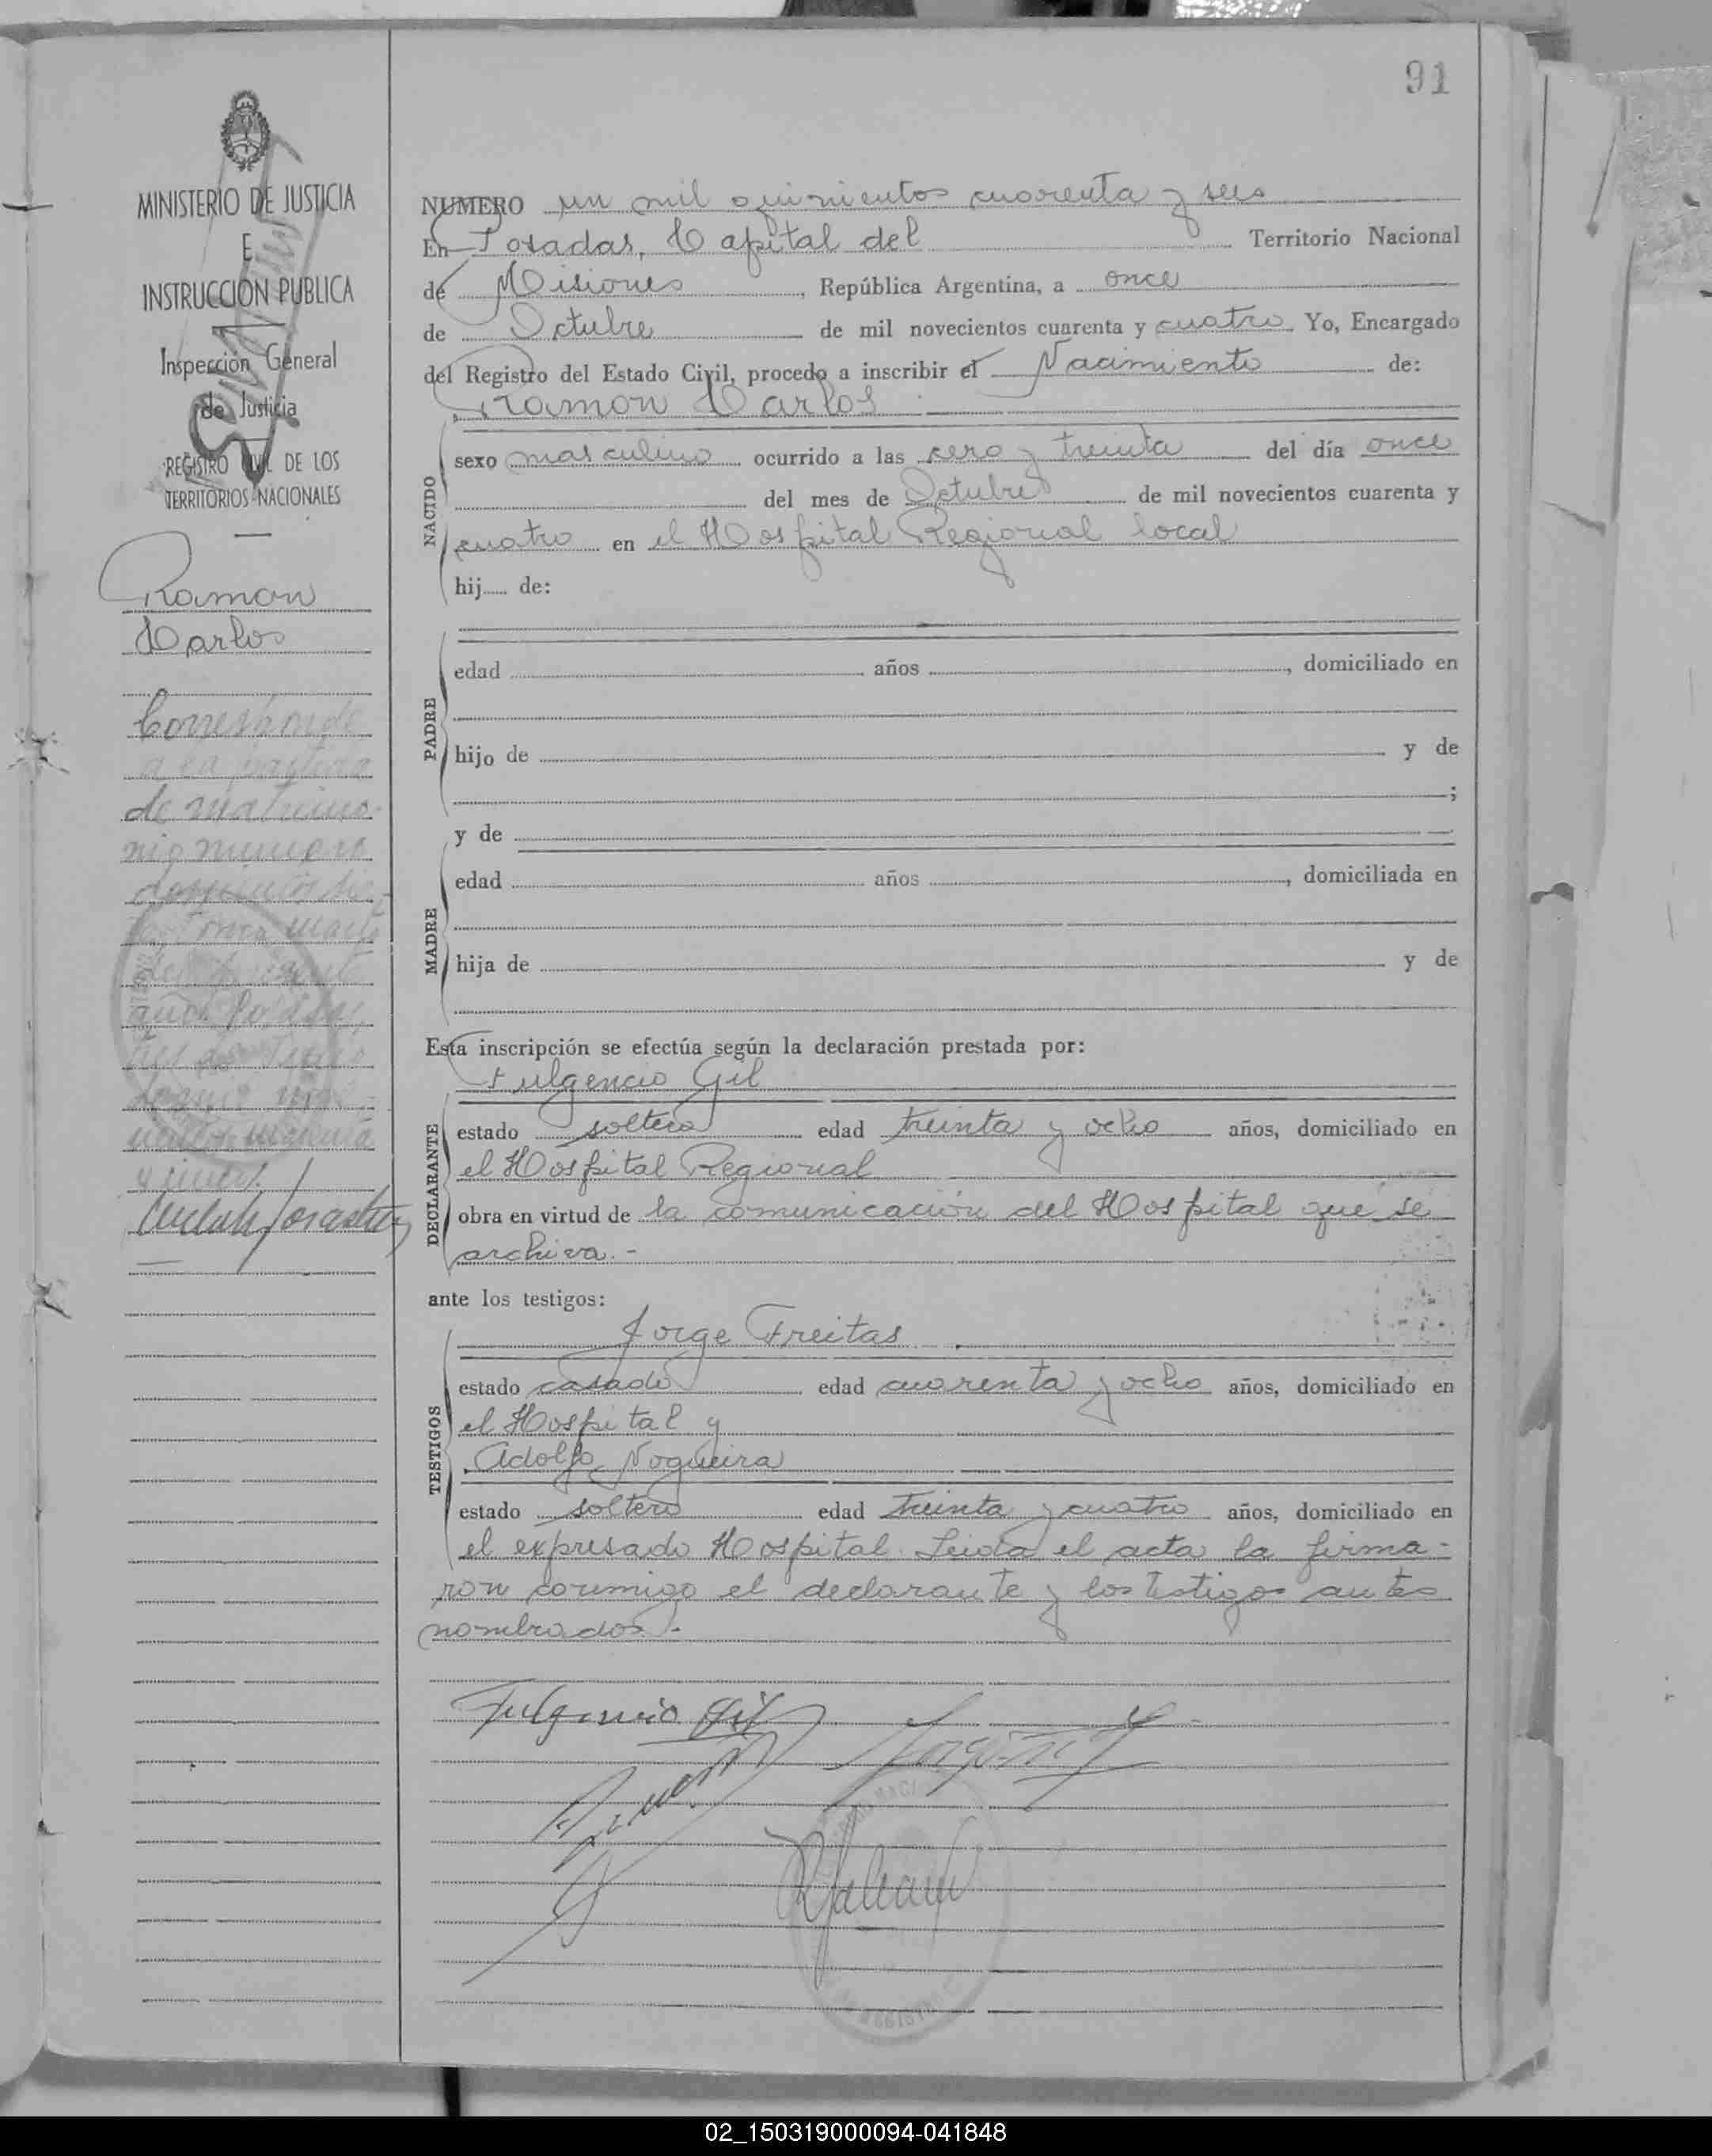 91
MINISTERIO DE JUSTICIA
E
INSTRUCCIÓN PUBLICA
Inspección General
de Justicia
REGISTRO CIVIL DE LOS
TERRITORIOS NACIONALES
Ramon
Carlos
Corresponde
a la partida
de matrimo-
nio numero
NUMERO un mil quinientos cuarenta y seis
En Posadas, Capital del Territorio Nacional
de Misiones, República Argentina, a once
de Octubre de mil novecientos cuarenta y cuatro Yo, Encargado
del Registro del Estado Civil, procedo a inscribir el Nacimiento de:
Ramon Carlos
NACIDO
sexo masculino ocurrido a las cero y treinta del día once
del mes de Octubre de mil novecientos cuarenta y
cuatro en el Hospital Regional local
hij..... de:
PADRE
edad años , domiciliado en
hijo de y de
;
y de
MADRE
edad años , domiciliada en
hija de y de
Esta inscripción se efectúa según la declaración prestada por:
Fulgencio Gil
DECLARANTE
estado soltero edad treinta y ocho años, domiciliado en
el Hospital Regional
obra en virtud de la comunicación del Hospital que se
archiva.-
ante los testigos:
Jorge Freitas
TESTIGOS
estado casado edad cuarenta y ocho años, domiciliado en
el Hospital y
Adolfo Nogueira
estado soltero edad treinta y cuatro años, domiciliado en
el expresado Hospital. Leida el acta la firma-
ron conmigo el declarante y los testigos antes
nombrados.-
Fulgencio Gil
02_150319000094-041848